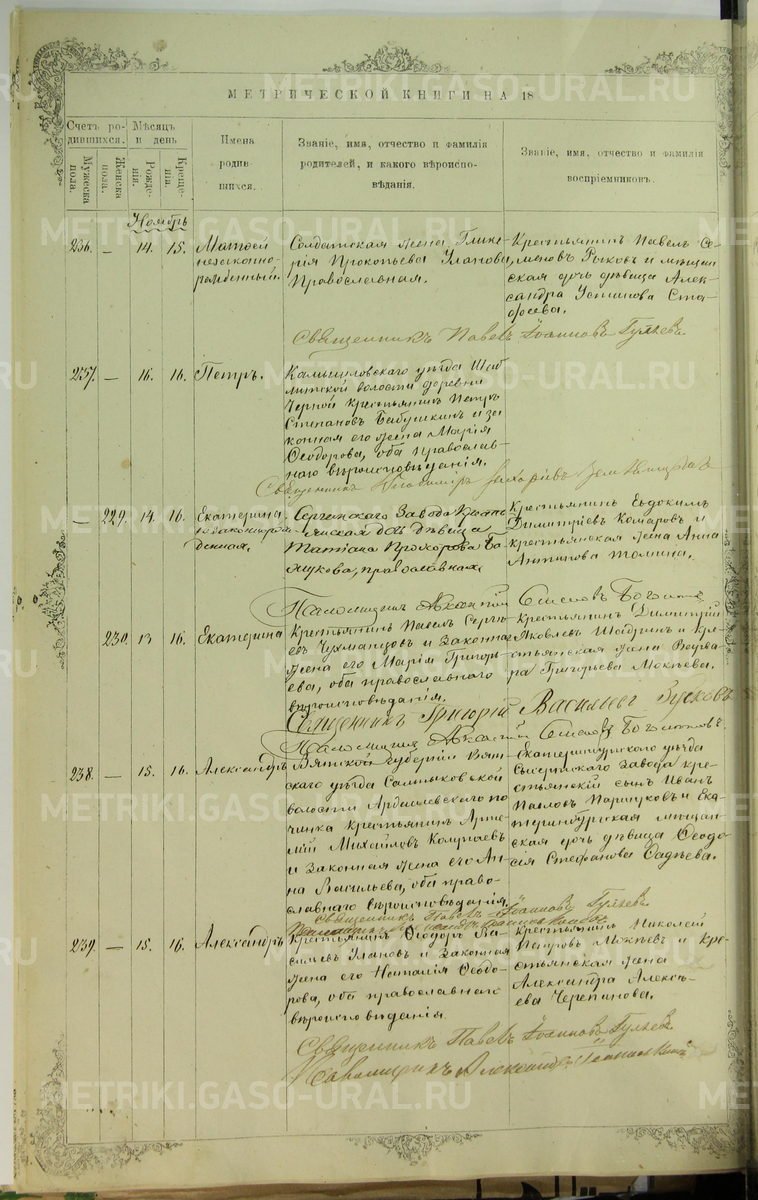 МЕТРИЧЕСКОЙ КНИГИ НА 18
Счетъ родившихся.
Мѣсяцъ и день
Имена родившихся.
Званіе, имя, отчество и фамилія родителей, и какого вѣроисповѣданія.
Званіе, имя, отчество и фамилія воспріемниковъ.
Мужеска пола.
Женска пола.
Рожденія.
Крещенія.
Ноябрь
236. — 14. 15.
Матѳей
незаконно-
рожденный.
Солдатская жена Глике-
рія Прокопьева Уланова,
Православная.
Крестьянинъ Павелъ Се-
меновъ Рыковъ и мѣщан-
ская дочь дѣвица Алек-
сандра Устинова
Священникъ Павелъ Іоанновъ Гуляевъ
237. — 16. 16.
Петръ.
Камышловскаго уѣзда
волости деревни
Черной крестьянинъ Петръ
Степановъ Бабушкинъ и за-
конная его жена Марія
Ѳеодорова, оба православ-
наго вѣроисповѣданія.
Священникъ
— 229. 14. 16.
Екатерина
незаконнорож-
денная.
Сергинскаго Завода
дѣвица
Татіана Прохорова
православная
Крестьянинъ Евдокимъ
Димитріевъ Комаровъ и
крестьянская жена Анна
Антипова
Псаломщикъ
230. 13 16.
Екатерина
Крестьянинъ Павелъ Серге-
евъ Чухманцовъ и Законная
жена его Марія Григорь-
ева, оба православнаго
вѣроисповѣданія.
Крестьянинъ Димитрій
Яковлевъ и кре-
стьянская жена Варва-
ра Григорьева Мокѣева.
Священникъ Григорій Васильевъ
Псаломщикъ
238. — 15. 16.
Александръ
Вятской губерніи Вят-
скаго уѣзда
волости Ардашевскаго по-
чинка крестьянинъ Арте-
мій Михайловъ
и Законная жена его Ан-
на Васильева, оба право-
славнаго вѣроисповѣданія.
Екатеринбургскаго уѣзда
Сысертскаго Завода кре-
стьянскій сынъ Иванъ
Павловъ и Ека-
теринбургская мѣщан-
ская дочь дѣвица Ѳеодо-
сія Стефанова
Священникъ Павелъ Іоанновъ Гуляевъ
239. — 15. 16.
Александръ
Крестьянинъ Ѳеодоръ Ва-
сильевъ Улановъ и Законная
жена его Наталія Ѳеодо-
рова, оба православнаго
вѣроисповѣданія.
Крестьянинъ Николай
Петровъ и кре-
стьянская жена
Александра Алексѣ-
ева Черепанова.
Священникъ Павелъ Іоанновъ Гуляевъ
Псаломщикъ Александръ
METRIKI.GASO-URAL.RU